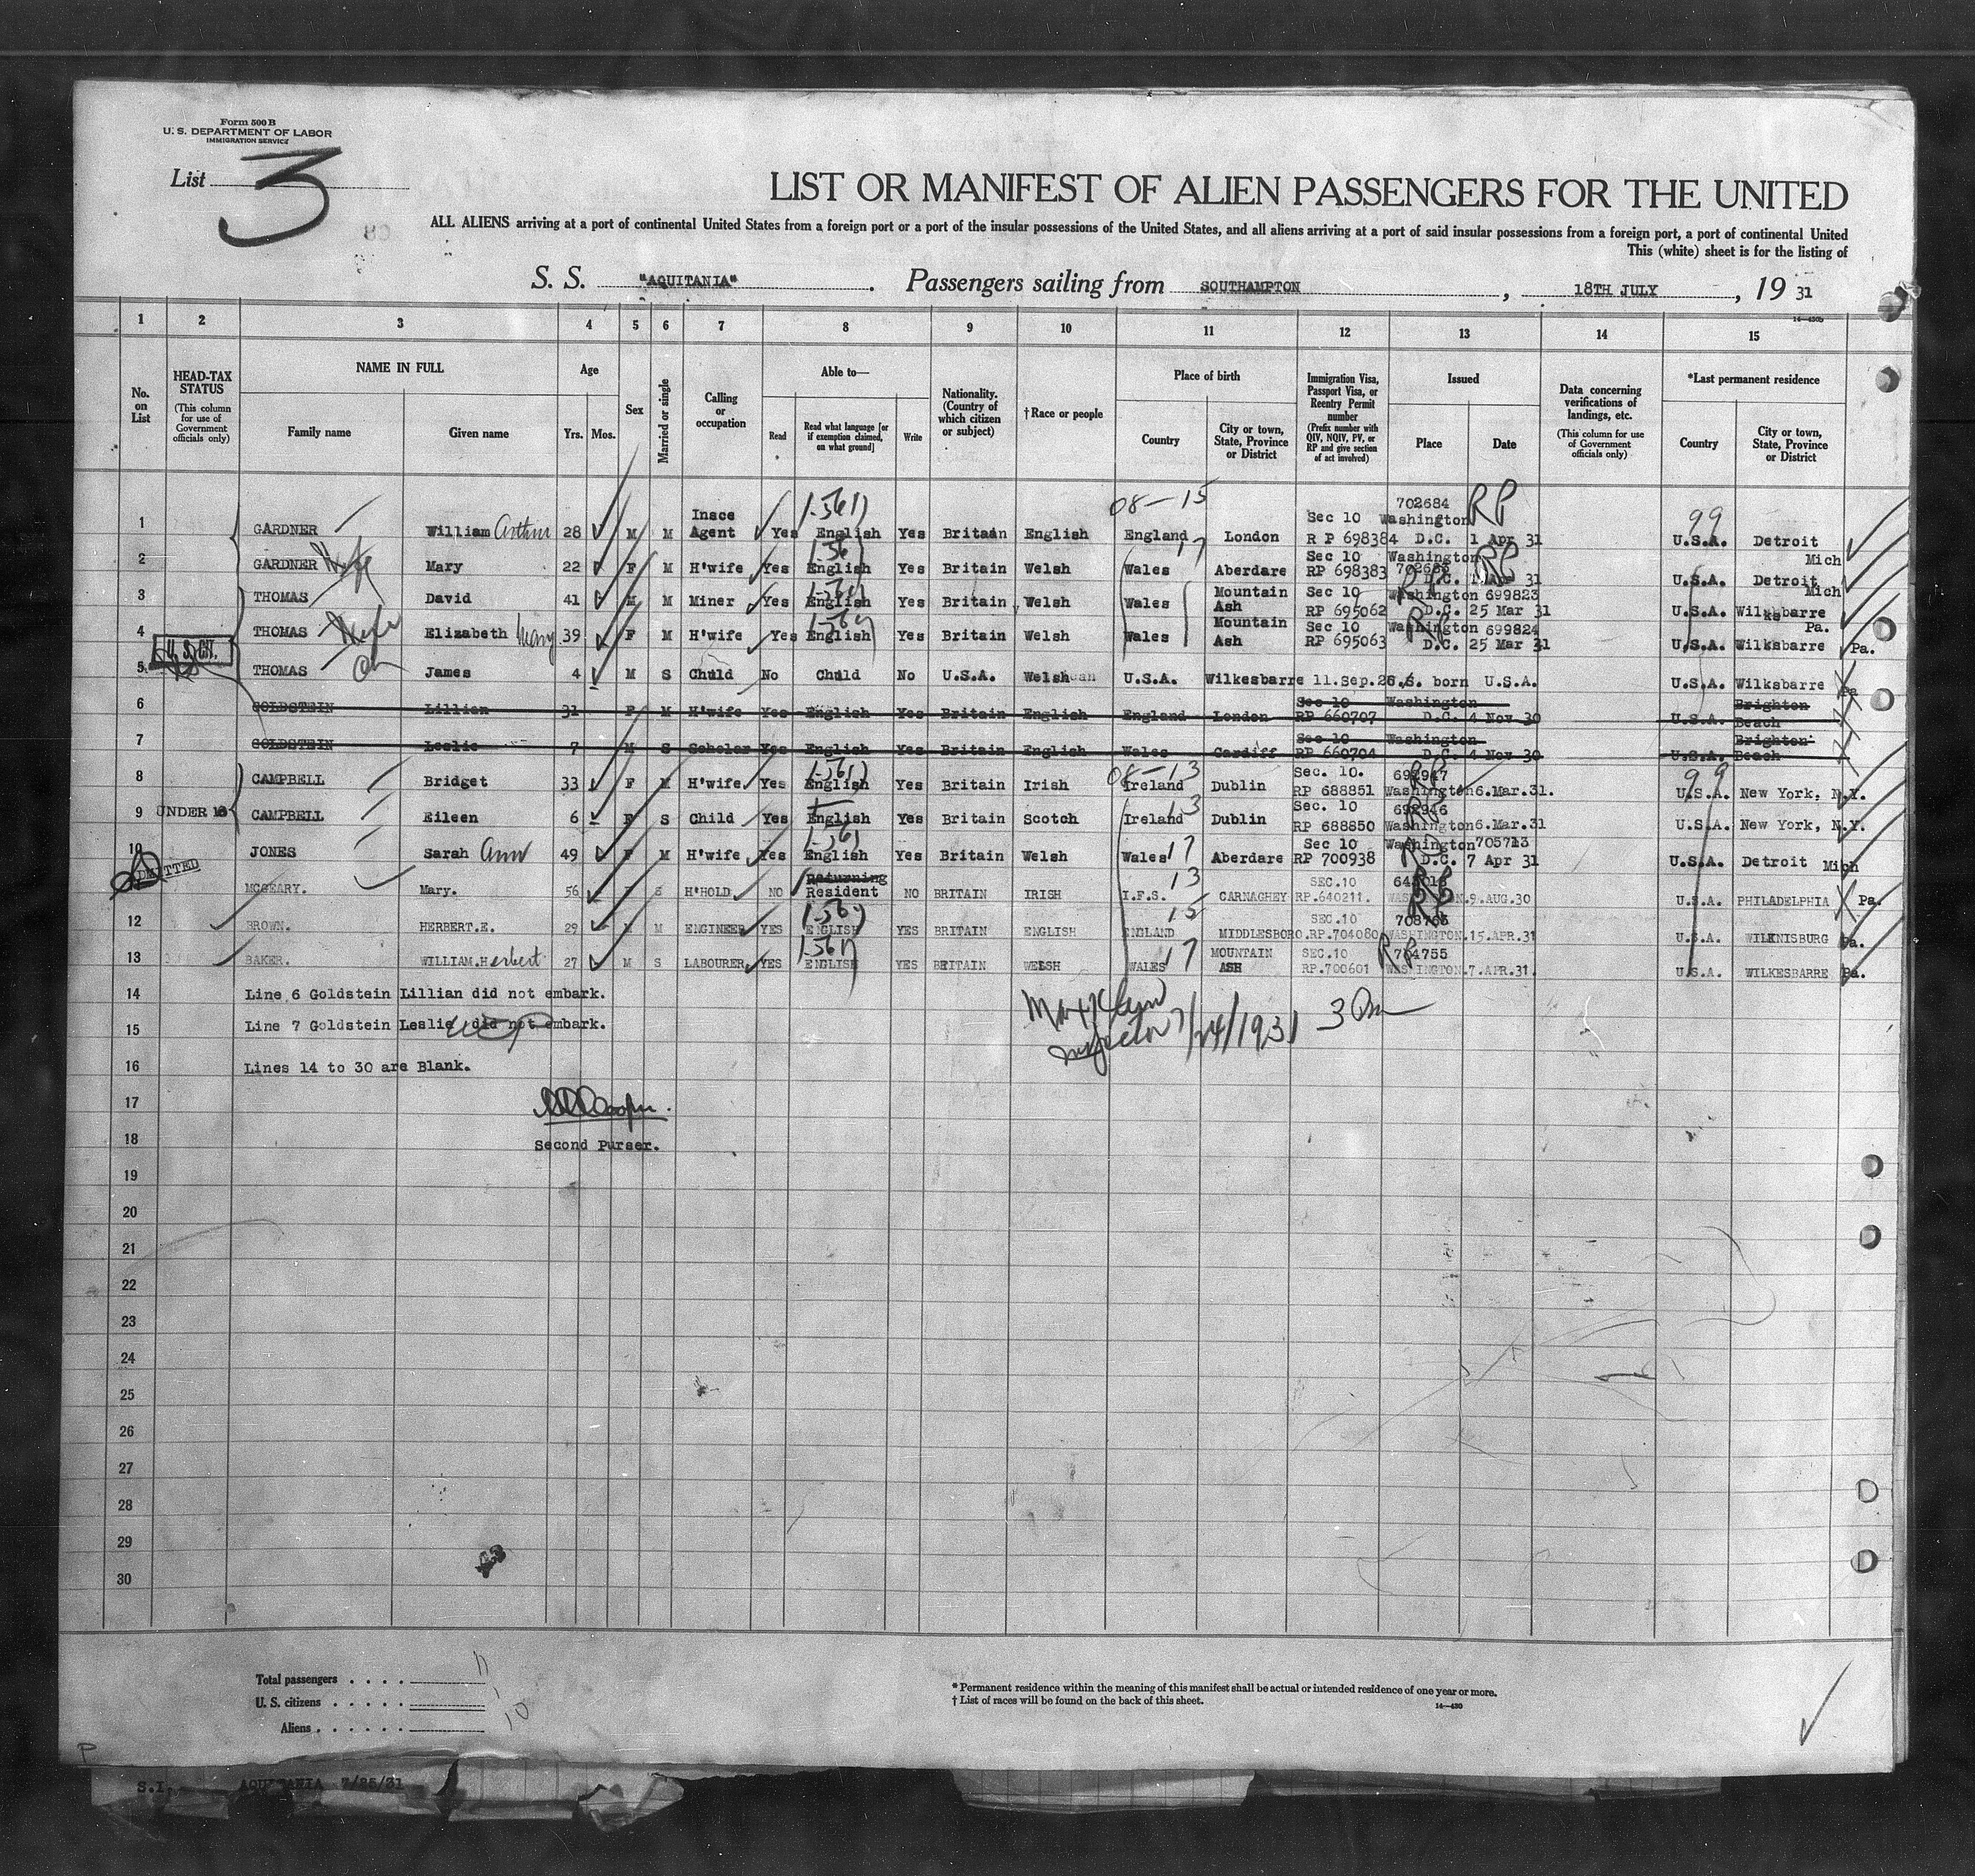 Form 500 B
U. S. DEPARTMENT OF LABOR
IMMIGRATION SERVICE
List 3
LIST OR MANIFEST OF ALIEN PASSENGERS FOR THE UNITED
ALL ALIENS arriving at a port of continental United States from a foreign port or a port of the insular possessions of the United States, and all aliens arriving at a port of said insular possessions from a foreign port, a port of continental United
This (white) sheet is for the listing of
S. S. "AQUITANIA". Passengers sailing from SOUTHAMPTON, 18TH JULY, 19 31
1 2 3 4 5 6 7 8 9 10 11 12 13 14 15
No. on List
HEAD-TAX STATUS (This column for use of Government officials only)
NAME IN FULL Family name Given name
Age Yrs. Mos.
Sex
Married or single
Calling or occupation
Able to— Read Read what language [or if exemption claimed, on what ground] Write
Nationality. (Country of which citizen or subject)
†Race or people
Place of birth Country City or town, State, Province or District
Immigration Visa, Passport Visa, or Reentry Permit number (Prefix number with QIV, NQIV, PV, or RP and give section of act involved)
Issued Place Date
Data concerning verifications of landings, etc. (This column for use of Government officials only)
*Last permanent residence Country City or town, State, Province or District
1 GARDNER William Arthur 28 M M Insce Agent Yes English Yes Britain English England London Sec 10 R P 698384 702684 Washington D.C. 1 Apr 31 RP U.S.A. Detroit Mich
2 GARDNER Wife Mary 22 F M H'wife Yes English Yes Britain Welsh Wales Aberdare Sec 10 RP 698383 Washington D.C. 1 Apr 31 U.S.A. Detroit Mich
3 THOMAS David 41 M M Miner Yes English Yes Britain Welsh Wales Mountain Ash Sec 10 RP 695062 Washington 699823 D.C. 25 Mar 31 U.S.A. Wilksbarre Pa.
4 THOMAS Wife Elizabeth Mary 39 F M H'wife Yes English Yes Britain Welsh Wales Mountain Ash Sec 10 RP 695063 Washington 699824 D.C. 25 Mar 31 U.S.A. Wilksbarre Pa.
U. S. CIT.
5 THOMAS Ch James 4 M S Child No Child No U.S.A. Welsh U.S.A. Wilkesbarre 11.Sep.26. born U.S.A. U.S.A. Wilksbarre Pa
6 GOLDSTEIN Lillian 31 F M H'wife Yes English Yes Britain English England London Sec 10 RP 660707 Washington D.C. 4 Nov 30 U.S.A. Brighton Beach
7 GOLDSTEIN Leslie 7 M S Scholar Yes English Yes Britain English Wales Cardiff Sec 10 RP 660704 Washington D.C. 4 Nov 30 U.S.A. Brighton Beach
8 CAMPBELL Bridget 33 F M H'wife Yes English Yes Britain Irish Ireland Dublin Sec. 10. RP 688851 Washington 6.Mar.31. U.S.A. New York, N.Y.
9 UNDER 16 CAMPBELL Eileen 6 F S Child Yes English Yes Britain Scotch Ireland Dublin Sec. 10 RP 688850 Washington 6.Mar.31 U.S.A. New York, N.Y.
10 JONES Sarah Ann 49 F M H'wife Yes English Yes Britain Welsh Wales Aberdare Sec 10 RP 700938 Washington 705713 D.C. 7 Apr 31 U.S.A. Detroit Mich
ADMITTED MCGEARY. Mary. 56 F S H'HOLD. NO Returning Resident NO BRITAIN IRISH I.F.S. CARNAGHEY SEC.10 RP.640211. 9.AUG.30 U.S.A. PHILADELPHIA Pa.
12 BROWN. HERBERT.E. 29 M M ENGINEER YES ENGLISH YES BRITAIN ENGLISH ENGLAND MIDDLESBORO. SEC.10 RP.704080 WASHINGTON.15.APR.31 U.S.A. WILKNISBURG Pa.
13 BAKER. WILLIAM.Herbert 27 M S LABOURER YES ENGLISH YES BRITAIN WELSH WALES MOUNTAIN ASH SEC.10 RP.700601 WASHINGTON.7.APR.31. U.S.A. WILKESBARRE Pa.
14 Line 6 Goldstein Lillian did not embark.
15 Line 7 Goldstein Leslie did not embark.
16 Lines 14 to 30 are Blank.
Inspector 7/24/1931
17
18 Second Purser.
19
20
21
22
23
24
25
26
27
28
29
30
Total passengers . . . . 11
U. S. citizens . . . . . 1
Aliens . . . . . . 10
* Permanent residence within the meaning of this manifest shall be actual or intended residence of one year or more.
† List of races will be found on the back of this sheet.
14—430
S.I. AQUITANIA 7/25/31